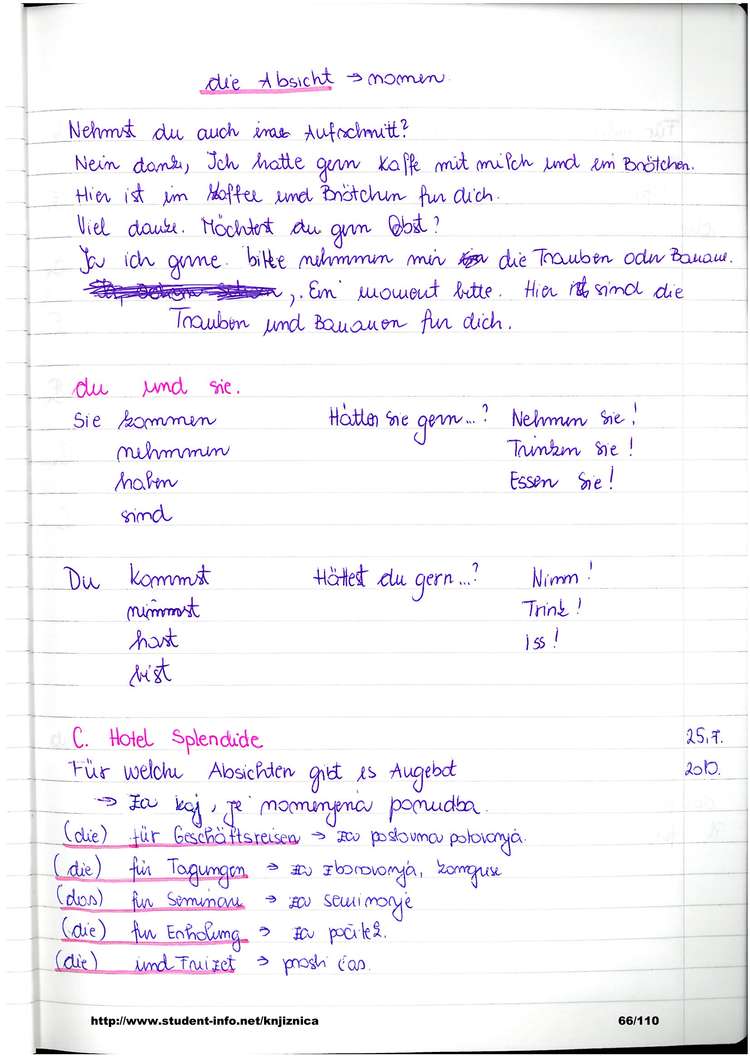 die Absicht → namen
Nehmst du auch Aufschnitt?
Nein dank, Ich hatte gern Kaffe mit milch und ein Brötchen.
Hier ist im Koffee und Brötchen fur dich.
Viel danke. Möchtest du gern Obst?
Ja ich gerne. bitte nehmmen mir die Trauben oder Banane.
, Ein moment bitte. Hier sind die
Trauben und Bananen fur dich.
du und sie.
Sie kommen Hätten sie gern...? Nehmen sie!
nehmmen Trinken sie!
haben Essen sie!
sind
Du kommst Hättest du gern...? Nimm!
nimmst Trink!
hast iss!
bist
C. Hotel Splendide 25.7.
Für welche Absichten gibt es Angebot 2010.
→ Za kaj, je namenjena ponudba.
(die) für Geschäftsreisen → za poslovna potovanja.
(die) für Tagungen → za zborovanja, kongrese
(das) fur Seminare → za seminarje
(die) fur Erholung → za počitek.
(die) und Freizet → prosti čas.
http://www.student-info.net/knjiznica 66/110